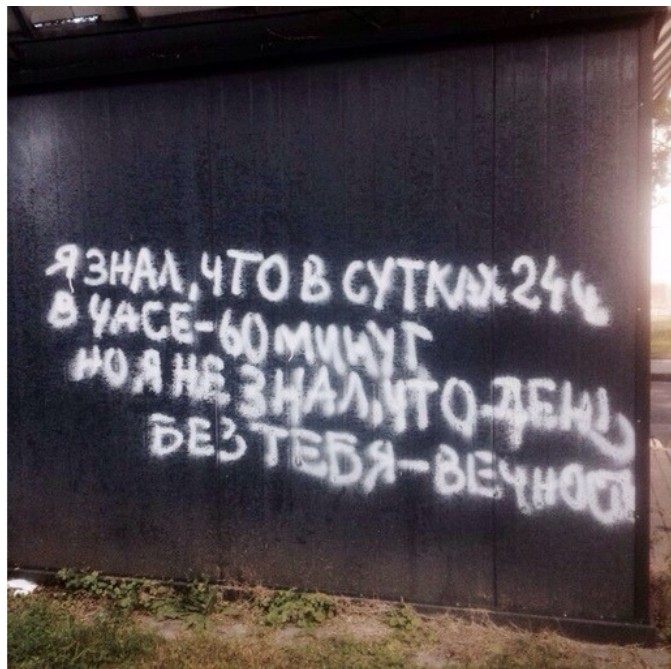 Я ЗНАЛ, ЧТО В СУТКАХ 24 Ч
В ЧАСЕ-60 МИНУТ
НО Я НЕ ЗНАЛ, ЧТО ДЕНЬ
БЕЗ ТЕБЯ-ВЕЧНОСТЬ